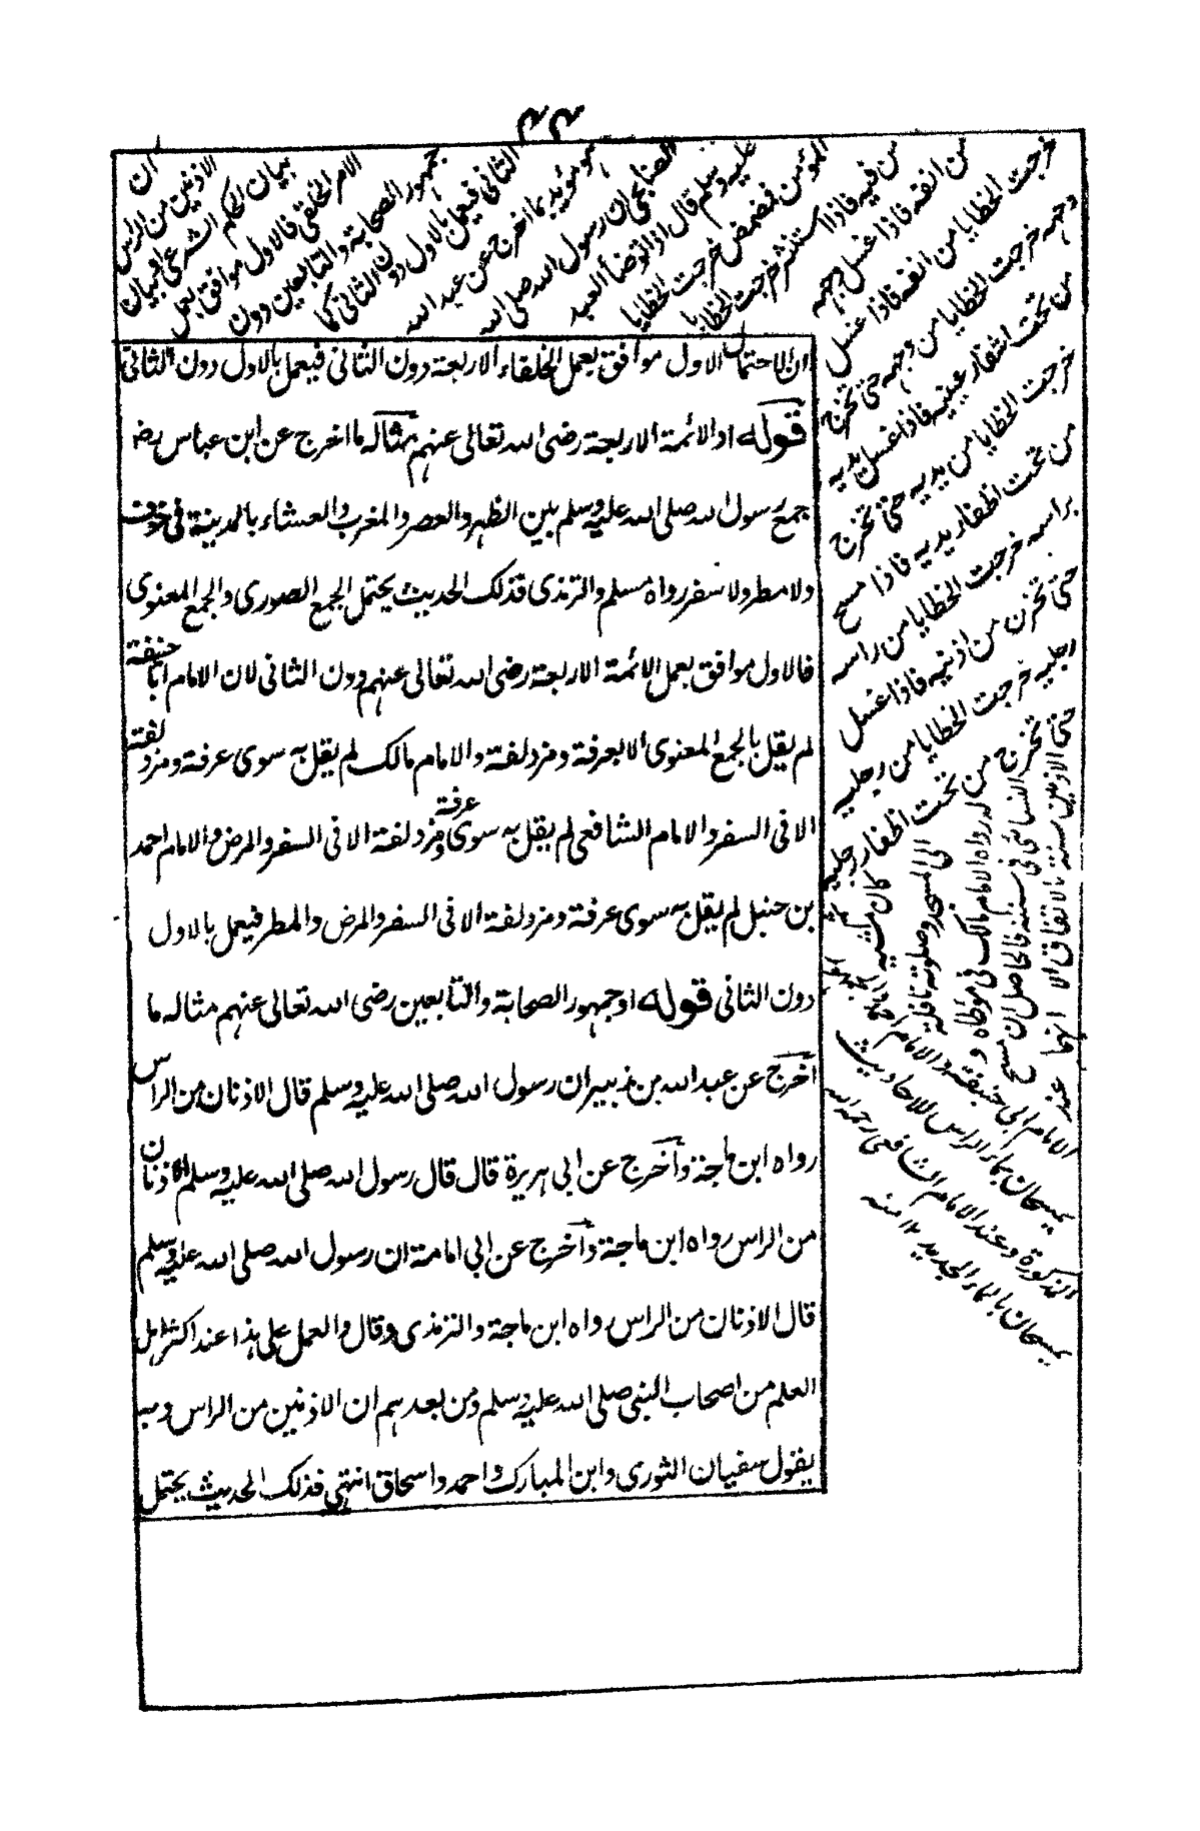 ۴۴
ان
الاذنين من الراس
بيان الحكم الشرعى او بيان
الامر الخلقى فالاول موافق بعمل
جمهور الصحابة والتابعين دون
الثانى فيعمل بالاول دون الثانى كما
هو مؤيد بما اخرج عن عبد الله
الصنابحى ان رسول الله صلى الله
عليه وسلم قال اذا توضأ العبد
المؤمن فمضمض خرجت الخطايا
من فيه فاذا استنثر خرجت الخطايا
من انفه فاذا غسل وجهه
خرجت الخطايا من وجهه حتى تخرج
من تحت اشفار عينيه فاذا غسل يديه
خرجت الخطايا من يديه حتى تخرج
من تحت اظفار يديه فاذا مسح
براسه خرجت الخطايا من راسه
حتى تخرج من اذنيه فاذا غسل
رجليه خرجت الخطايا من رجليه
حتى تخرج من تحت اظفار رجليه
ثم كان مشيه
الى المسجد وصلوته نافلة
له رواه الامام مالك فى موطاه و
النسائى فى سننه فالحاصل ان مسح
الاذنين سنة بالاتفاق الا انهما
عند الامام ابى حنيفة والامام احمد
يمسحان بماء الراس للاحاديث
المذكورة وعند الامام الشافعى رحمه الله
يمسحان بالماء الجديد ۱۲ منه
ان الاحتمال الاول موافق بعمل الخلفاء الاربعة دون الثانى فيعمل بالاول دون الثانى
قوله او الائمة الاربعة رضى الله تعالى عنهم مثاله ما اخرج عن ابن عباس رضـ
جمع رسول الله صلى الله عليه وسلم بين الظهر والعصر والمغرب والعشاء بالمدينة فى غير خوف
ولا مطر ولا سفر رواه مسلم والترمذى فذلك الحديث يحتمل الجمع الصورى والجمع المعنوى
فالاول موافق بعمل الائمة الاربعة رضى الله تعالى عنهم دون الثانى لان الامام ابا حنيفة
لم يقل بالجمع المعنوى الا بعرفة ومزدلفة والامام مالك لم يقل به سوى عرفة ومزدلفة
الا فى السفر والامام الشافعى لم يقل به سوى عرفة ومزدلفة الا فى السفر والمرض والامام احمد
بن حنبل لم يقل به سوى عرفة ومزدلفة الا فى السفر والمرض والمطر فيعمل بالاول
دون الثانى قوله او جمهور الصحابة والتابعين رضى الله تعالى عنهم مثاله ما
اخرج عن عبد الله بن زبير ان رسول الله صلى الله عليه وسلم قال الاذنان من الراس
رواه ابن ماجة واخرج عن ابى هريرة قال قال رسول الله صلى الله عليه وسلم الاذنان
من الراس رواه ابن ماجة واخرج عن ابى امامة ان رسول الله صلى الله عليه وسلم
قال الاذنان من الراس رواه ابن ماجة والترمذى وقال والعمل على هذا عند اكثر اهل
العلم من اصحاب النبى صلى الله عليه وسلم ومن بعدهم ان الاذنين من الراس وبه
يقول سفيان الثورى وابن المبارك واحمد واسحاق انتهى فذلك الحديث يحتمل